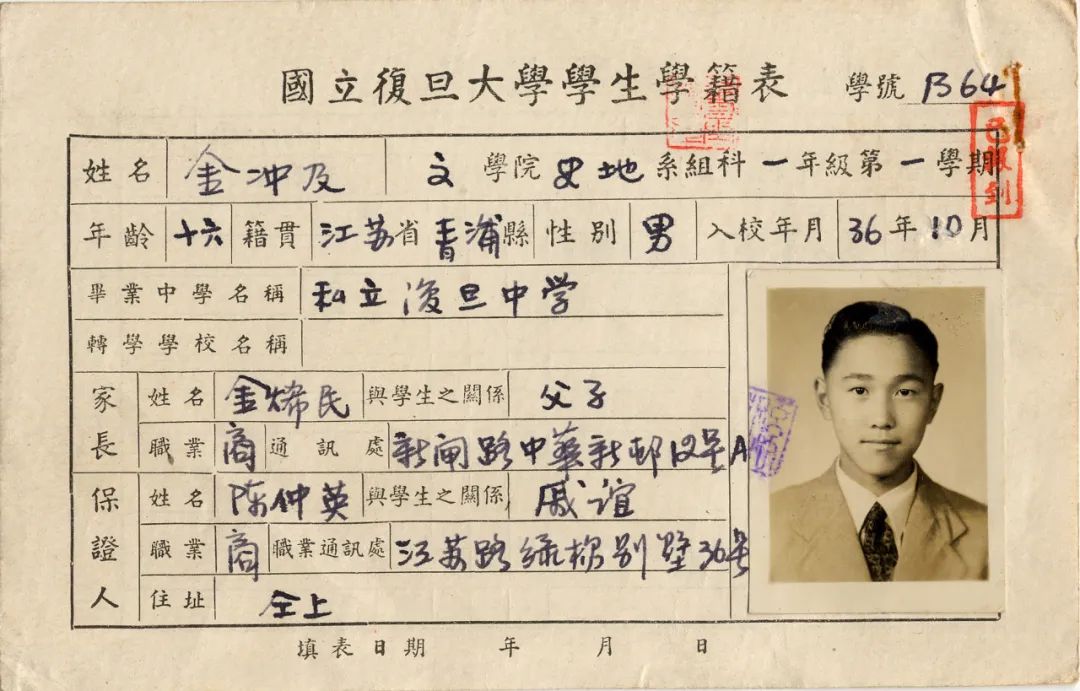 國立復旦大學學生學籍表 學號 B64
已報到
姓名 金冲及 文 學院 史地 系組科 一 年級第 一 學期
年齡 十六 籍貫 江苏省 青浦縣 性別 男 入校年月 36年10月
畢業中學名稱 私立復旦中学
轉學學校名稱
家長 姓名 金烯民 與學生之關係 父子
職業 商 通訊處 新闸路中華新邨12号A
保證人 姓名 陈仲英 與學生之關係 戚谊
職業 商 職業通訊處 江苏路绿杨别墅36号
住址 仝上
填表日期 年 月 日